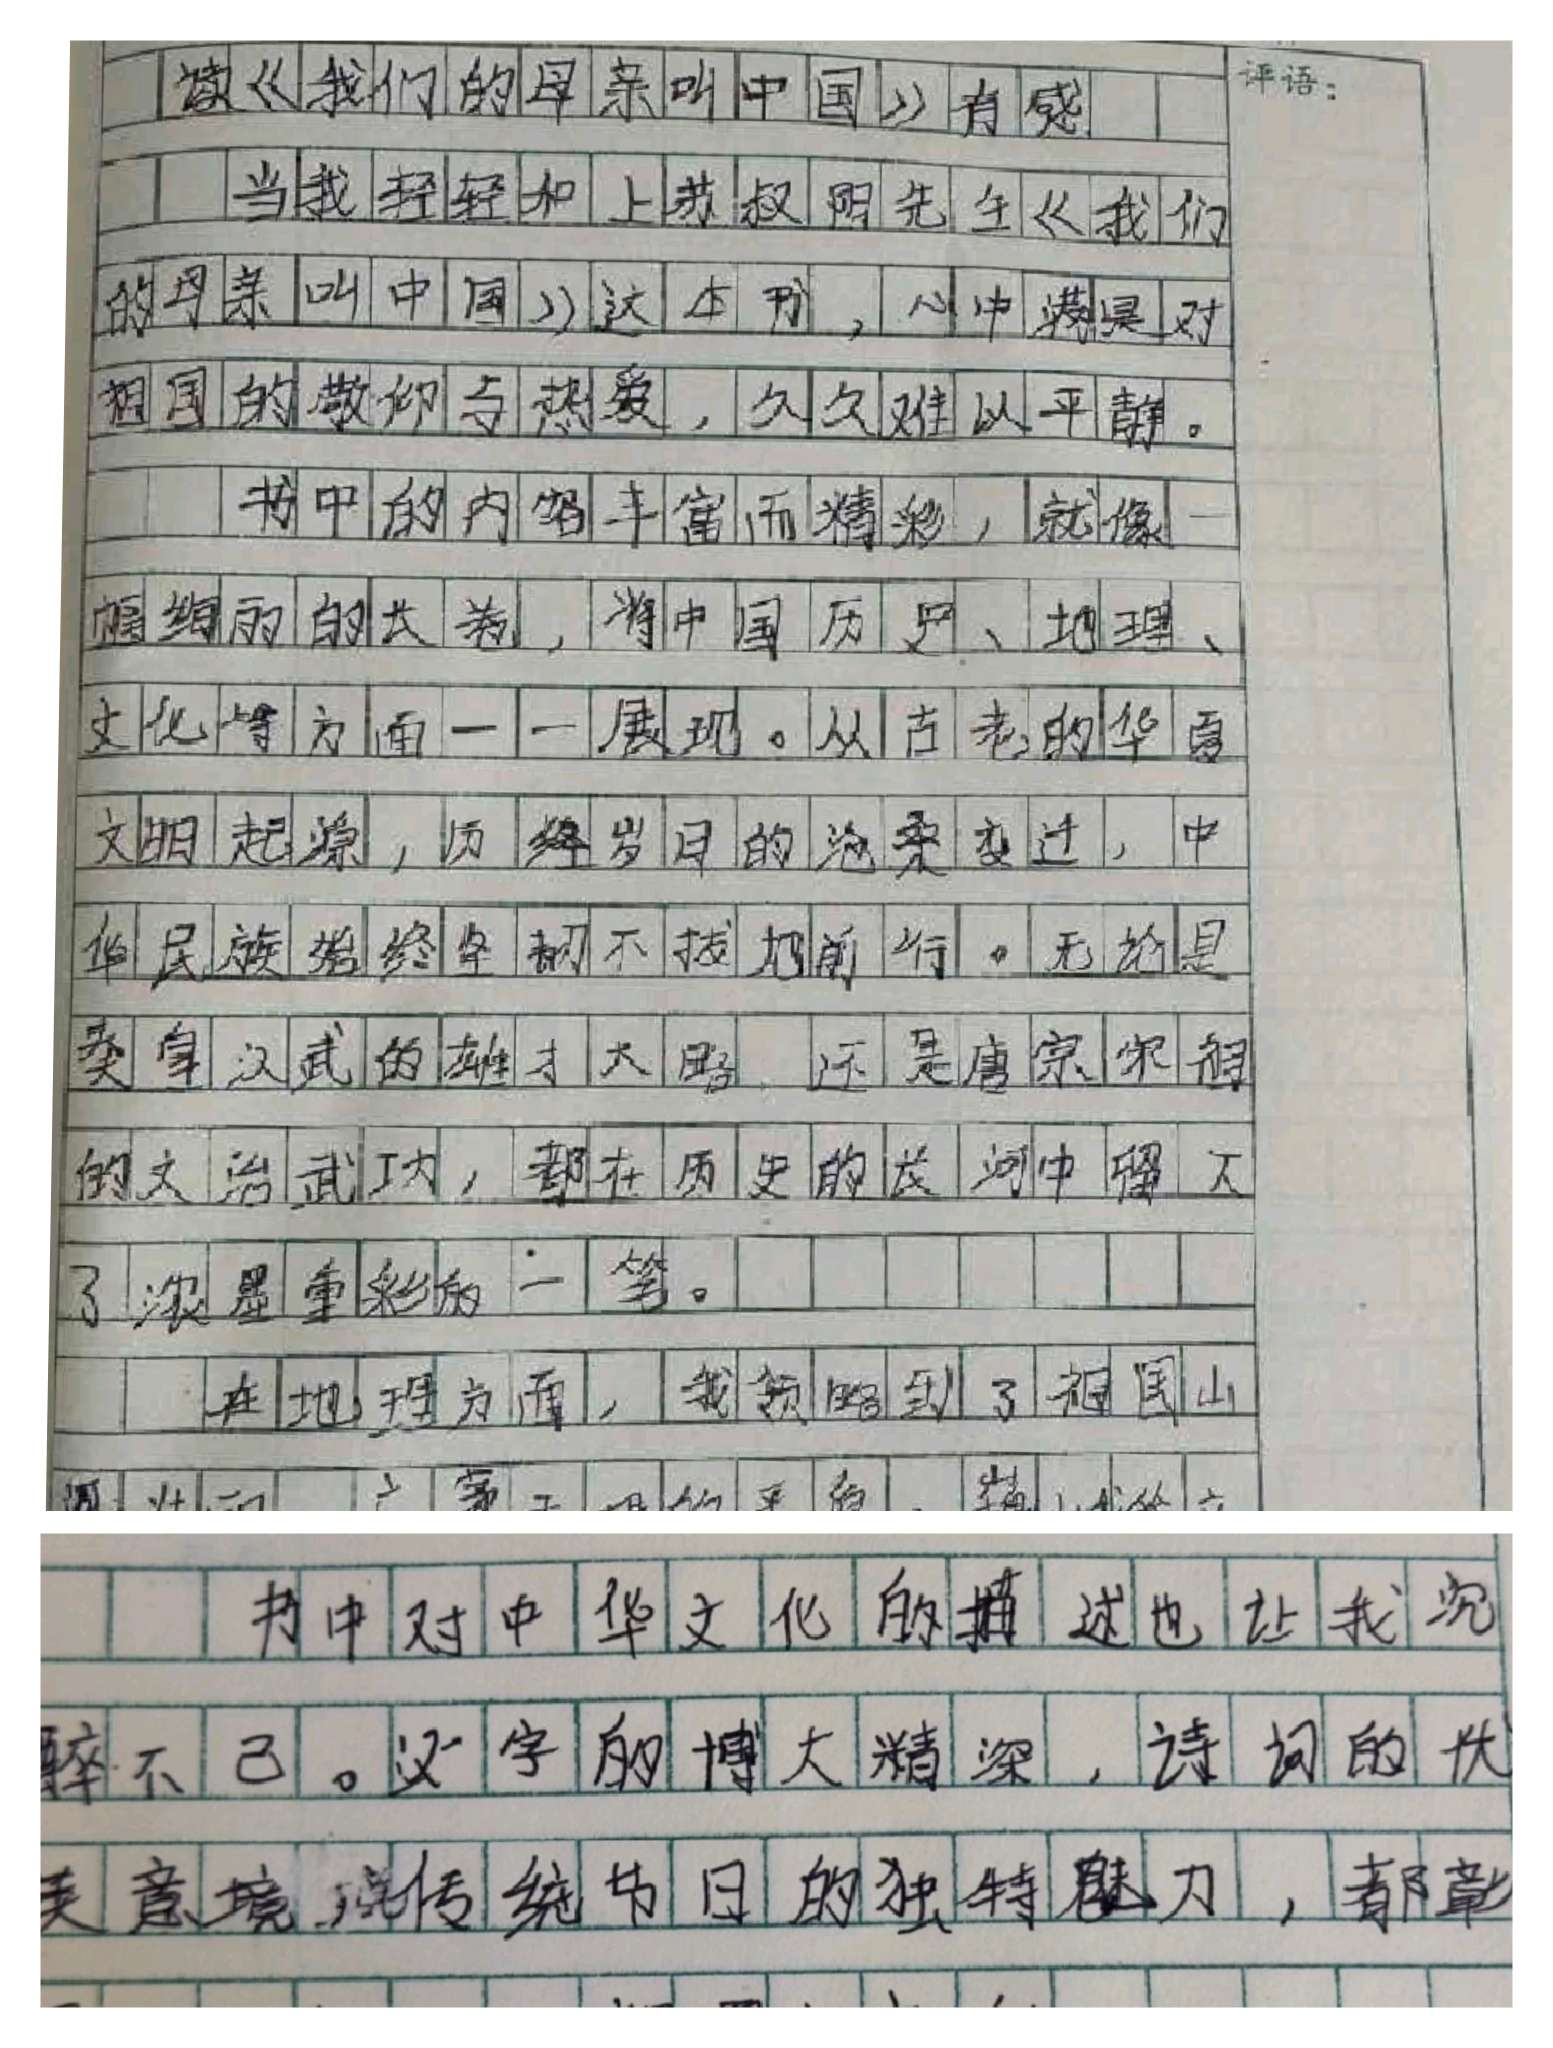 读《我们的母亲叫中国》有感
评语：
当我轻轻和上苏叔阳先生《我们
的母亲叫中国》这本书，心中满是对
祖国的敬仰与热爱，久久难以平静。
书中的内容丰富而精彩，就像一
幅绚丽的长卷，将中国历史、地理、
文化等方面一一展现。从古老的华夏
文明起源，历经岁月的沧桑变迁，中
华民族始终坚韧不拔地前行。无论是
秦皇汉武的雄才大略，还是唐宗宋祖
的文治武功，都在历史的长河中留下
了浓墨重彩的一笔。
在地理方面，我领略到了祖国山
书中对中华文化的描述也让我沉
醉不已。汉字的博大精深，诗词的优
美意境，传统节日的独特魅力，都彰